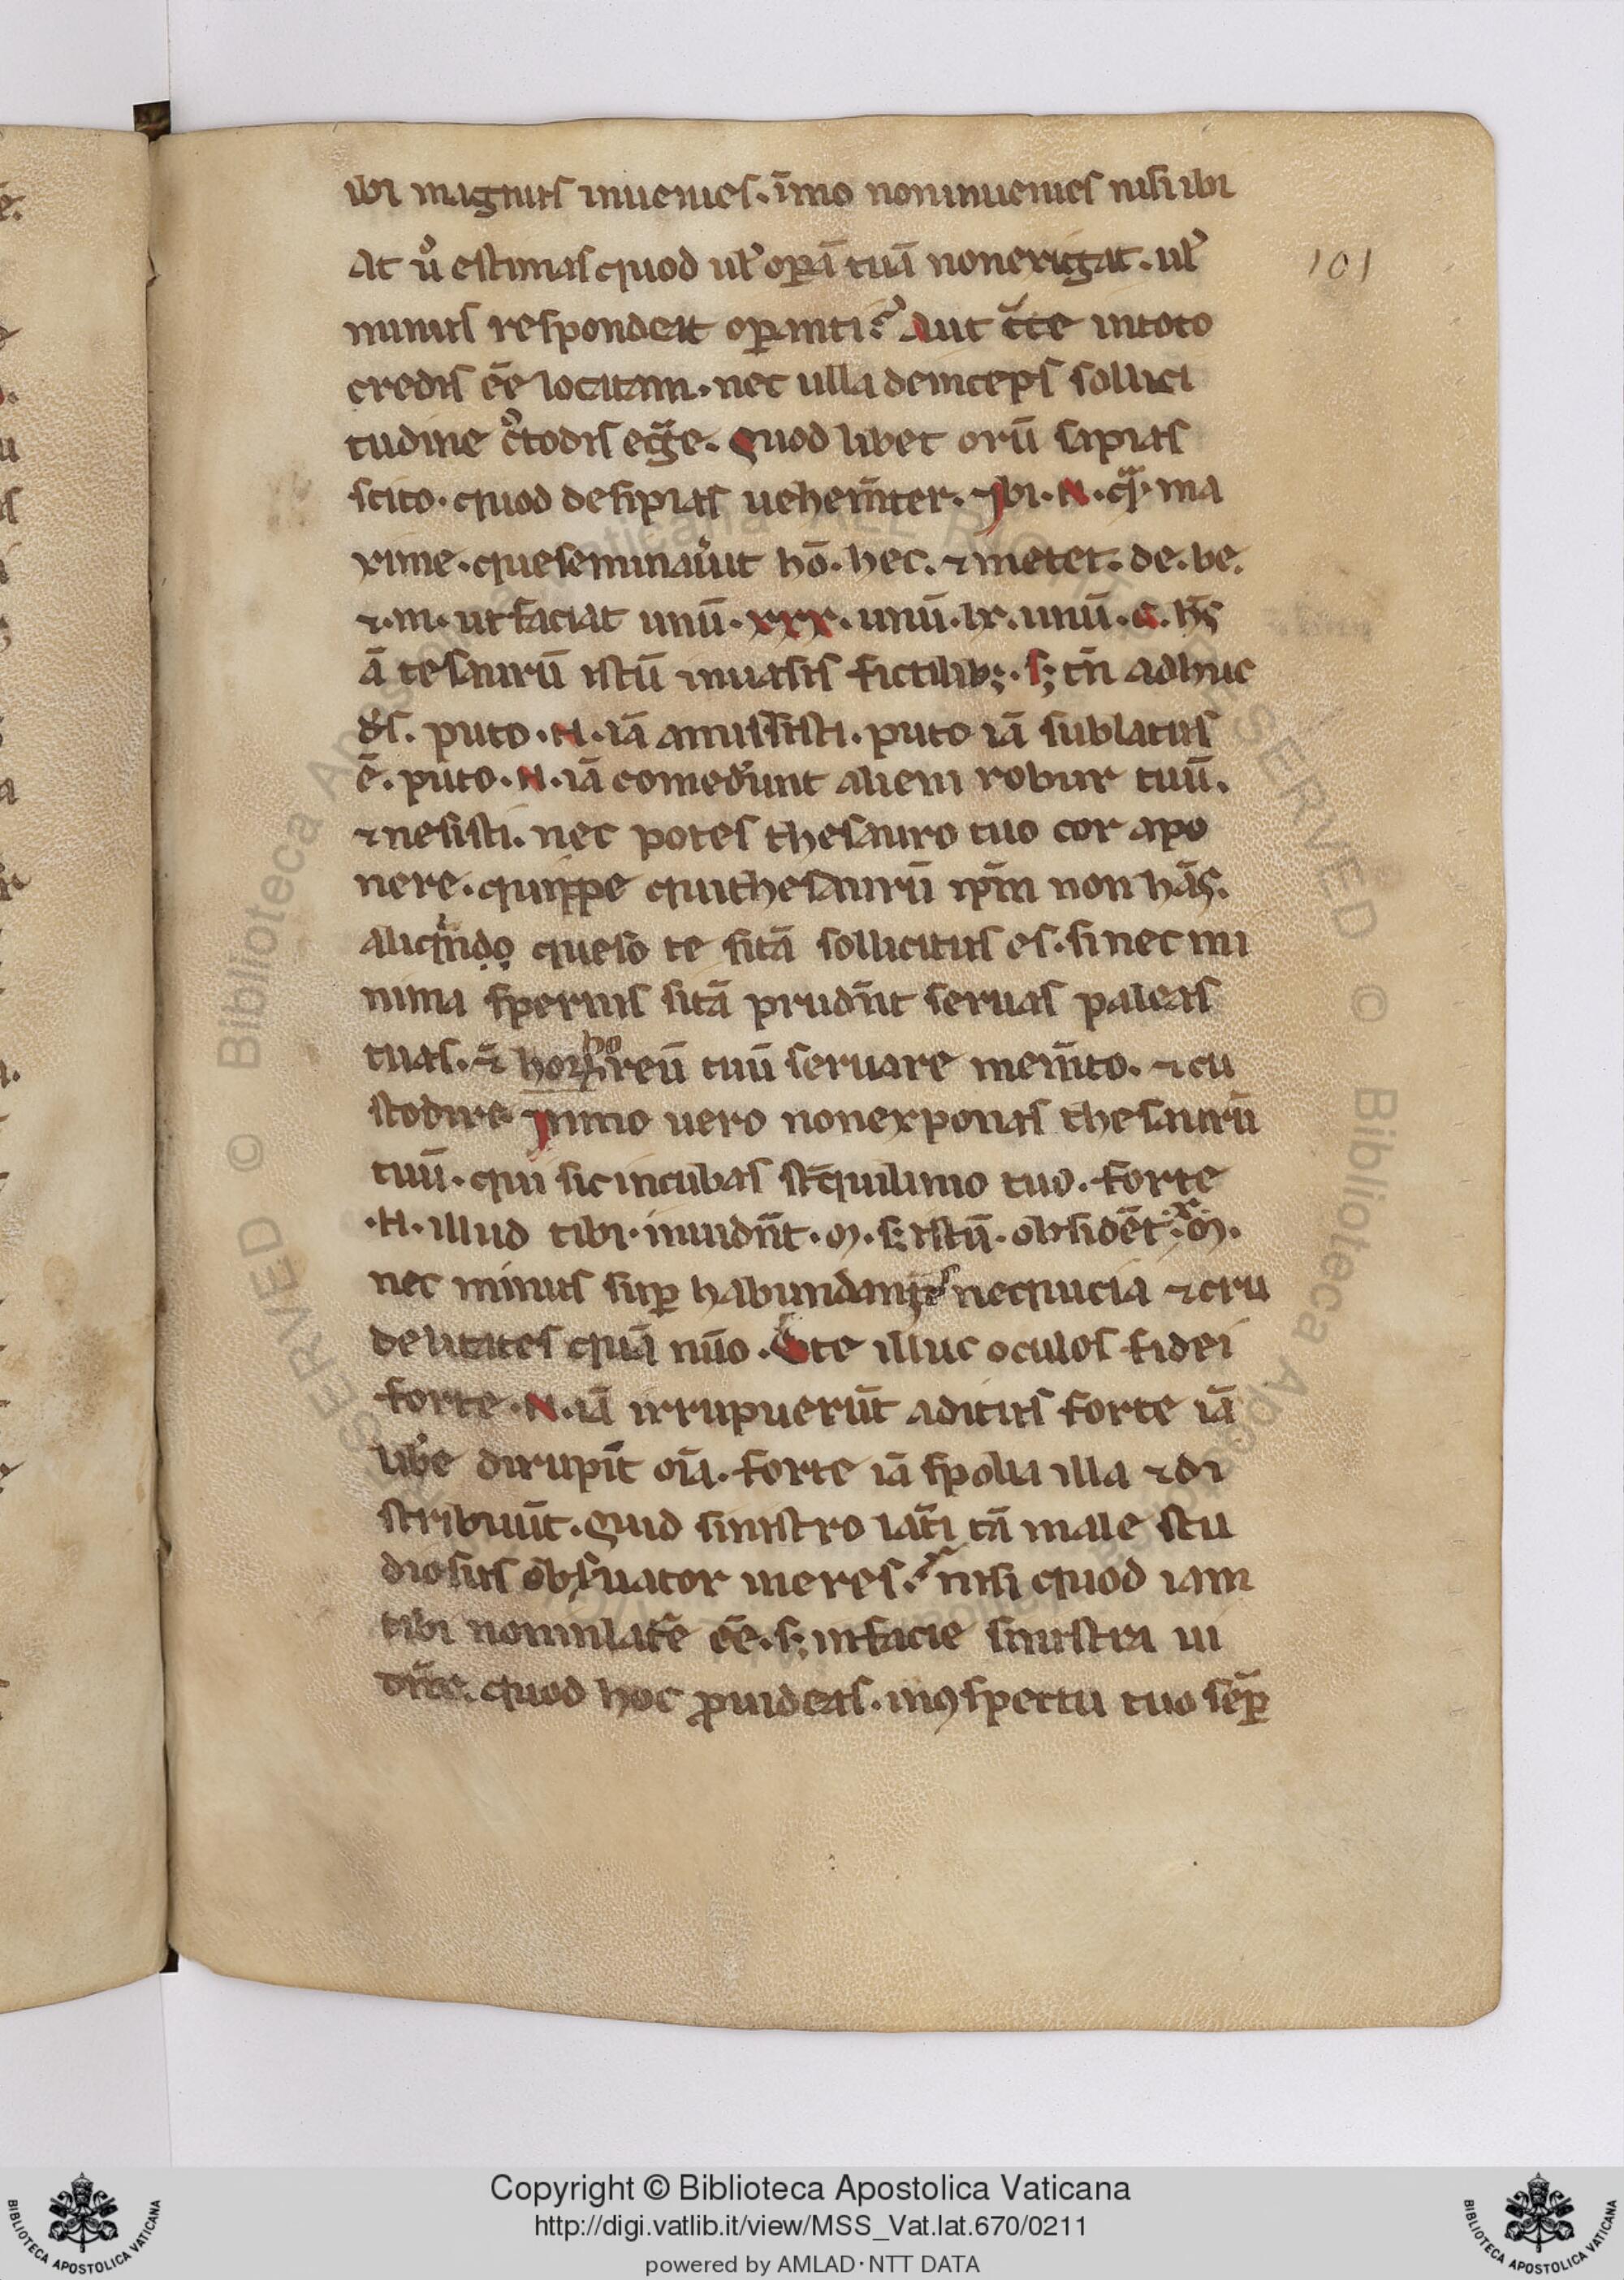 ibi magnus inuenies. īmo non inuenies nisi ibi
At ũ estimas quod ul' oꝑā tuā non exigat. ul'
minus respondeat oꝑanti? Aut t̃re in toto
credis ēe locutam. nec ulla deinceps sollici
tudine c̾todis egẽ. Quod libet orū sapias
scito. quod desipias uehem̄ter. Ibi. N. qͣ ma
xime. que seminau̾it hō. hec. ⁊ metet. de. be.
⁊. m. ut faciat unū. xxx. unū. lx. unū. C. Hēs
ā tesaurū istū in uasis fictilibꝫ. sꝫ tn̄ adhuc
puto. N. iā amisisti. puto iā sublatus
ē. puto. N. iā comed̾unt alieni robur tuū.
⁊ nesisti. nec potes thesauro tuo cor apo
nere. quippe qui thesaurū ip̄m non hās.
aliqn̄do queso te sitā sollicitus es. si nec mi
nima spernis sitā prudn̄t seruas paleas
tuas. ⁊ horreū tuū seruare mem̄to. ⁊ cu
stodire Immo uero non exponas thesaurū
tuū. qui sic incubas st̄quilinio tuo. forte
.N. illud tibi. inuidn̄t. m. sꝫ istū. obsidēt. m.
nec minus suꝑ habundant nequicia ⁊ cru
delitates quā nūo. te illuc oculos fidei
forte. N. iā irrupuerūt aditus forte iā
lib̾e dirupīt oīa. forte iā spolia illa ⁊ di
stribuūt. Quid sinistro lat̾i tā male stu
diosus obs̾uator ineres? nisi quod iam
tibi non in lat̾e ēe. sꝫ in facie sinistra ui
quod hoc ꝓuideas. in ꝯspectu tuo sēꝑ
101
Copyright © Biblioteca Apostolica Vaticana
http://digi.vatlib.it/view/MSS_Vat.lat.670/0211
powered by AMLAD·NTT DATA